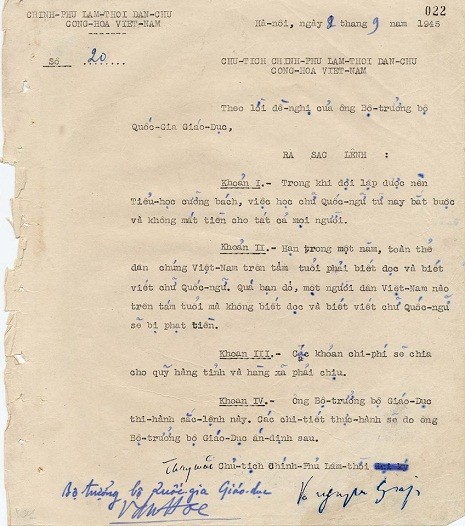 022
CHÍNH-PHỦ LÂM-THỜI DÂN-CHỦ
CỘNG-HÒA VIỆT-NAM
Số 20
Hà-nội, ngày 8 tháng 9 năm 1945
CHỦ-TỊCH CHÍNH-PHỦ LÂM-THỜI DÂN-CHỦ
CỘNG-HÒA VIỆT-NAM
Theo lời đề-nghị của ông Bộ-trưởng bộ
Quốc-Gia Giáo-Dục,
RA SẮC LỆNH :
Khoản I.- Trong khi đợi lập được nền
Tiểu-học cưỡng bách, việc học chữ Quốc-ngữ từ nay bắt buộc
và không mất tiền cho tất cả mọi người.
Khoản II.- Hạn trong một năm, toàn thể
dân chúng Việt-Nam trên tám tuổi phải biết đọc và biết
viết chữ Quốc-ngữ. Quá hạn đó, một người dân Việt-Nam nào
trên tám tuổi mà không biết đọc và biết viết chữ Quốc-ngữ
sẽ bị phạt tiền.
Khoản III.- Các khoản chi-phí sẽ chia
cho quỹ hàng tỉnh và hàng xã phải chịu.
Khoản IV.- Ông Bộ-trưởng bộ Giáo-Dục
thi-hành sắc-lệnh này. Các chi-tiết thực-hành sẽ do ông
Bộ-trưởng bộ Giáo-Dục ấn-định sau.
Thay mặt Chủ-tịch Chính-Phủ Lâm-thời
Bộ trưởng bộ Quốc-gia Giáo-dục
Võ nguyên Giáp